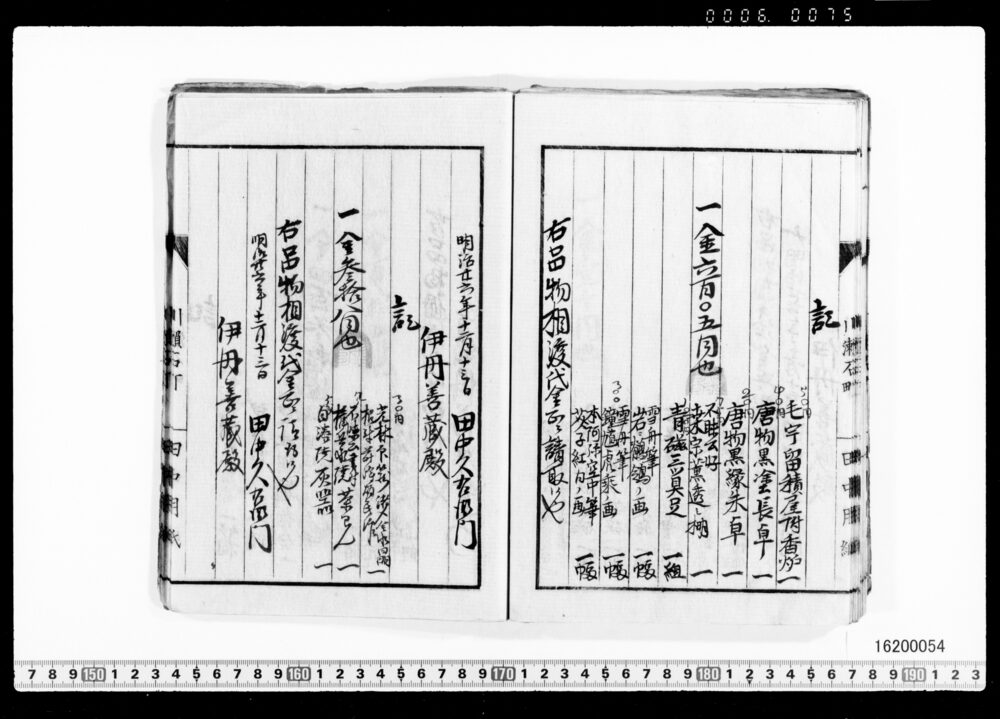 0006. 0075
記
一金六百〇五円也
三〇円
毛宇留積屋附香炉 一
四〇円
唐物黒塗長卓 一
二〇円
唐物黒縁朱卓 一
不昧公好
棚 一
青磁三具足 一組
雪舟筆
岩鶺鴒ノ画 一幅
三〇〇
雪舟筆
鐘馗虎乗画 一幅
本阿弥空中筆
茨子紅白ノ画 一幅
右品物相渡代金正ニ請取候也
明治廿六年十二月十三日 田中久右衛門
伊丹善蔵殿
記
三〇円
一金参拾八円也
茶わん 一
灰器 一
右品物相渡代金正ニ請取候也
明治廿六年十二月十三日 田中久右衛門
伊丹善蔵殿
川瀬石町
田中用紙
川瀬石町
田中用紙
16200054
7 8 9 150 1 2 3 4 5 6 7 8 9 160 1 2 3 4 5 6 7 8 9 170 1 2 3 4 5 6 7 8 9 180 1 2 3 4 5 6 7 8 9 190 1 2 3